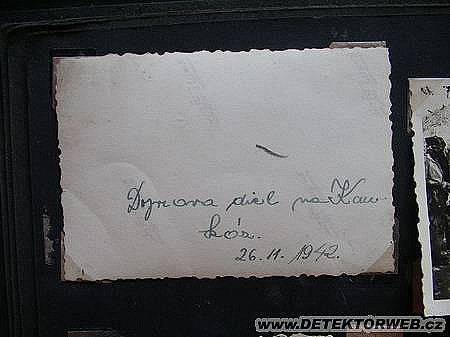 Doprava diel na Kau-
káz.
26.11.1942.
WWW.DETEKTORWEB.CZ